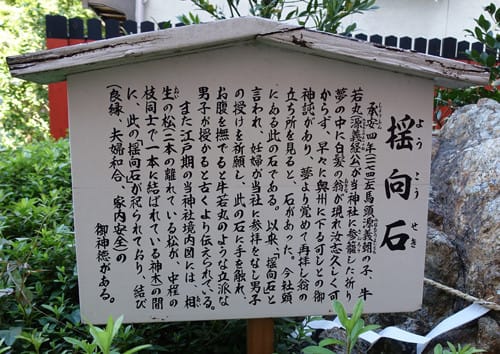 揺向石
よう こう せき
承安四年（一一七四）左馬頭源義朝の子、牛
若丸（源義経公）が当神社に参籠した折り
夢の中に白髪の翁が現れ「汝志久しく可
からず、早々に奥州に下る可し」との御
神託があり、夢より覚めて再拝し翁の
立ち所を見ると、石があった。今社頭
にある此の石である。以来、「揺向石」と
言われ、妊婦が当社に参拝をなし男子
の授けを祈願し、此の石に手を触れ、
お腹を撫でると牛若丸のような立派な
男子が授かると古くより伝えられている。
また江戸期の当神社境内図には、相
生の松（二本の離れている松が、中程の
枝同士で一本に結ばれている神木）の間
に、此の揺向石が祀られており、結び
（良縁、夫婦和合、家内安全）の
御神徳がある。